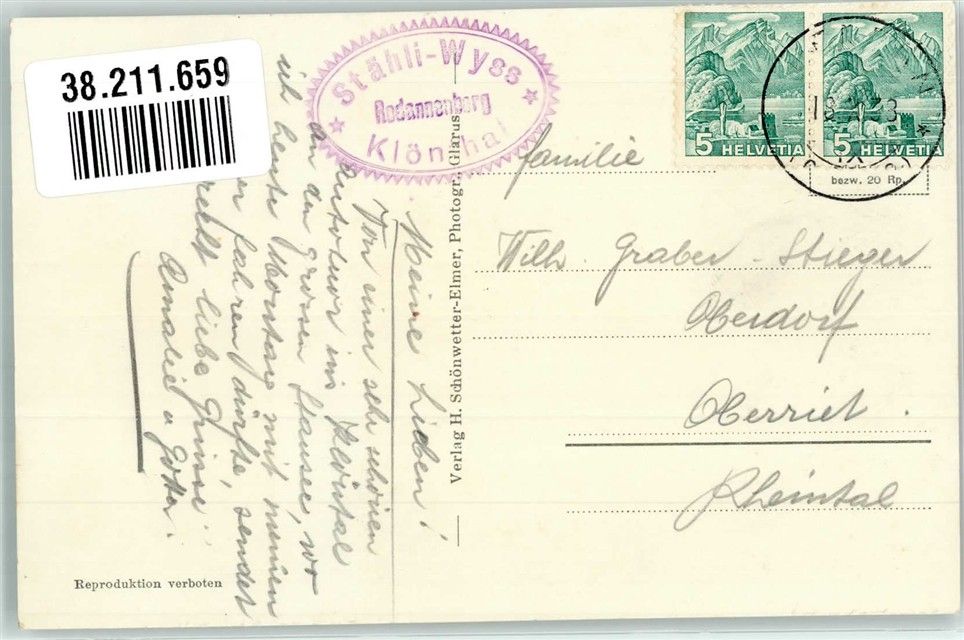 38.211.659
Stähli-Wyss
Rodannenberg
Klönthal
5 HELVETIA
5 HELVETIA
bezw. 20 Rp.
Familie
Wilh. Graber-Stieger
Oberdorf
Oberriet.
Rheintal
Verlag H. Schönwetter-Elmer, Photogr., Glarus
Meine Lieben!
Von einer sehr schönen
Autotour ins Klöntal
an den grossen Stausee, wo
ich heute Montag mit meinen
fahren durfte, sendet
recht liebe Grüsse
Amalie u
Reproduktion verboten